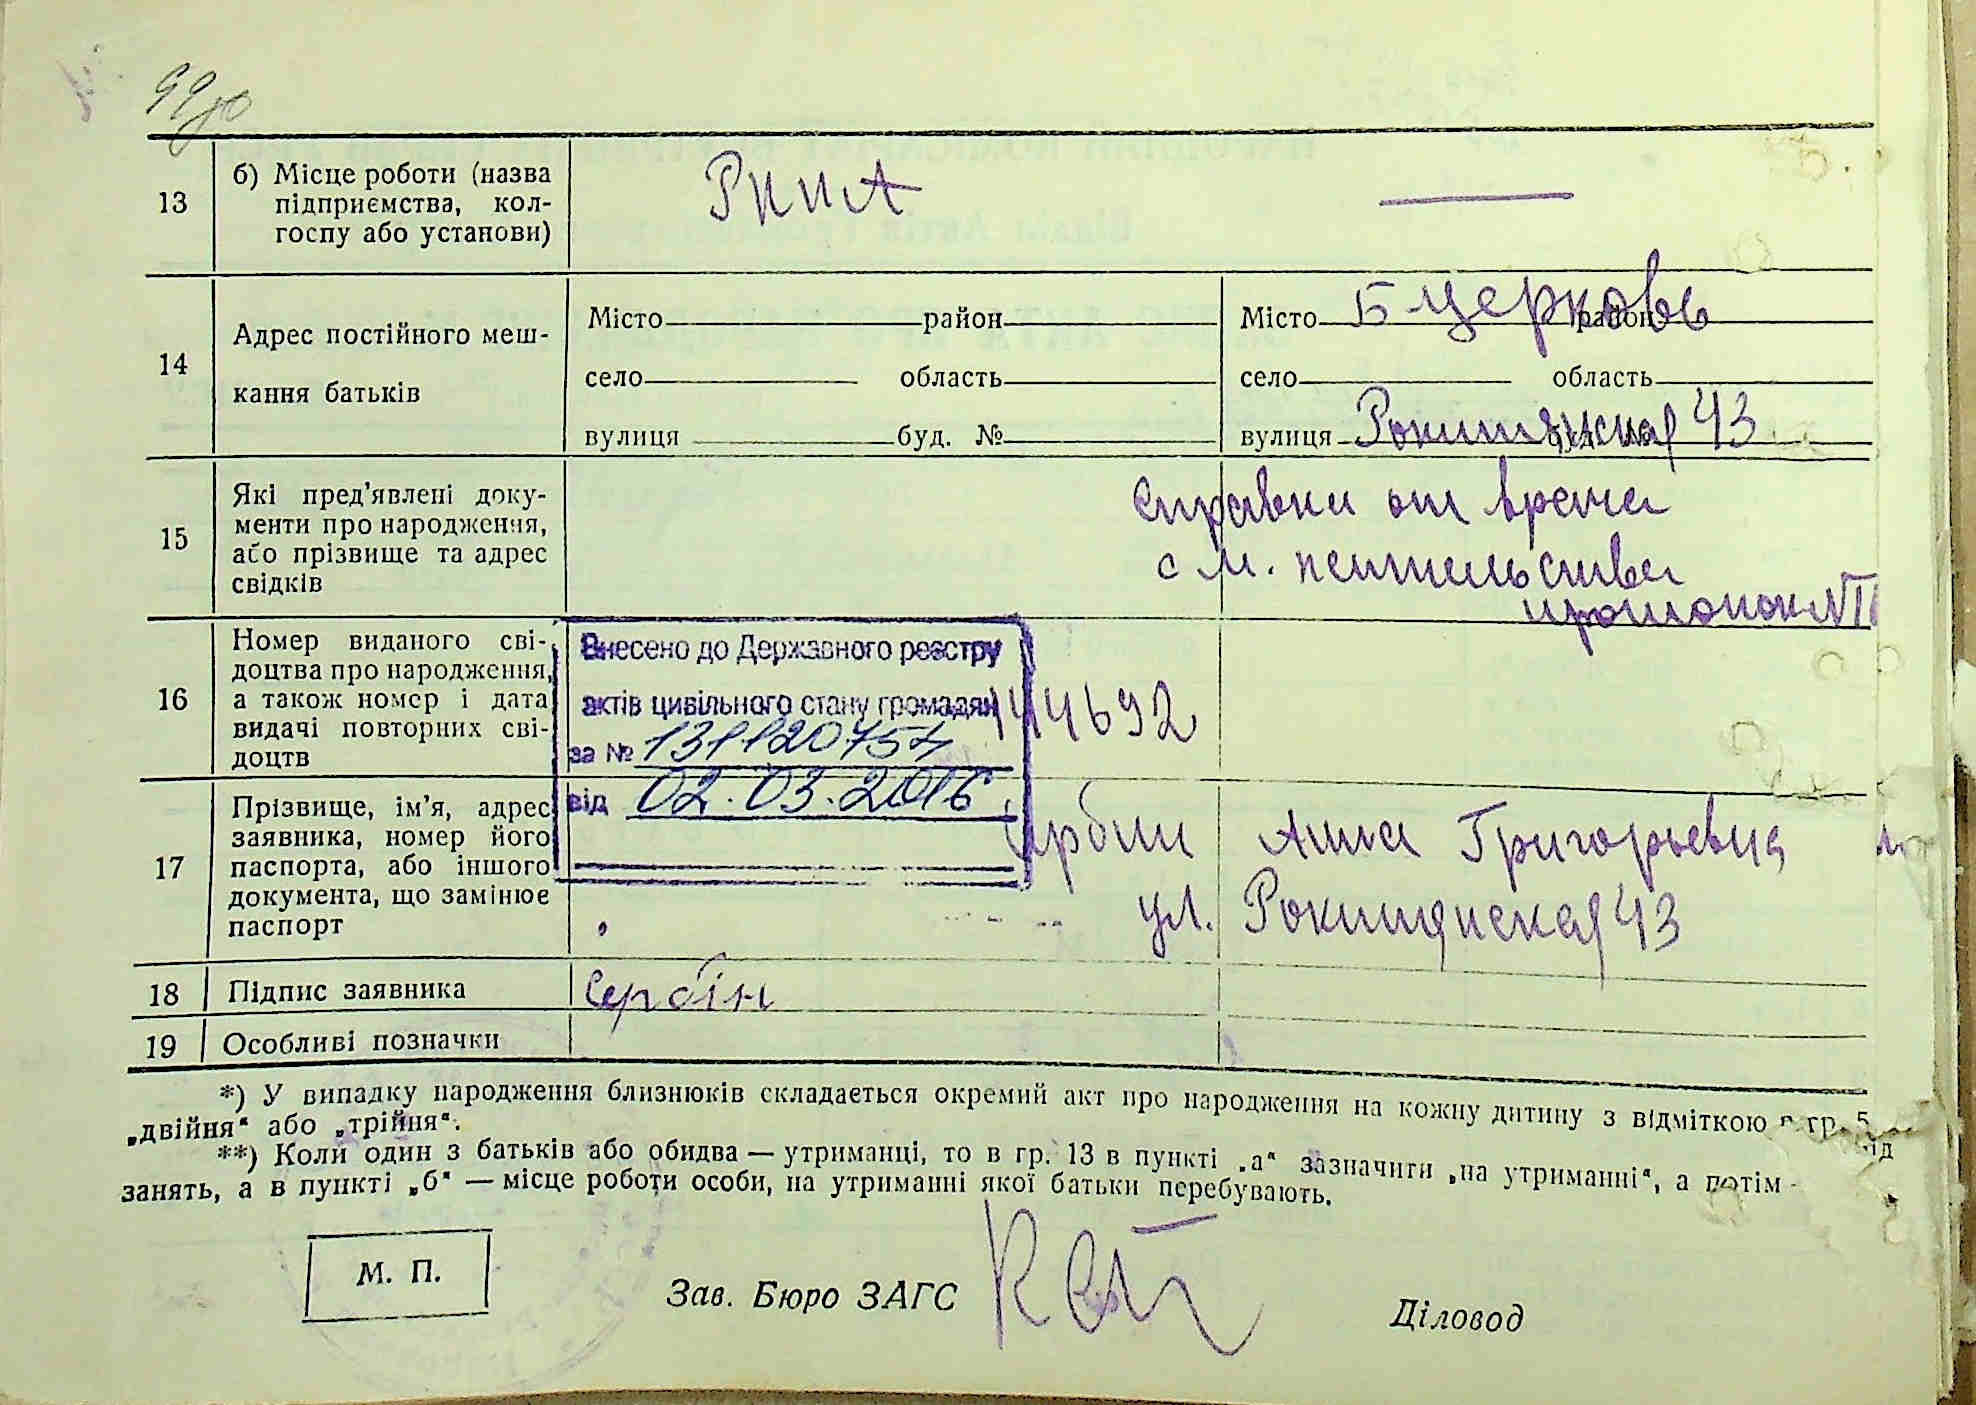 13 б) Місце роботи (назва
підприємства, кол-
госпу або установи)
РККА
14 Адрес постійного меш-
кання батьків
Місто район
село область
вулиця буд. №
Місто Б церковь район
село область
вулиця Рокитянская 43
15 Які пред’явлені доку-
менти про народження,
або прізвище та адрес
свідків
справки от врача
с м. жительства
16 Номер виданого сві-
доцтва про народження,
а також номер і дата
видачі повторних сві-
доцтв
Внесено до Державного реєстру
актів цивільного стану громадян
за №
від 02.03.2016
17 Прізвище, ім’я, адрес
заявника, номер його
паспорта, або іншого
документа, що замінює
паспорт
Анна Григорьевна
ул. Рокитянская 43
18 Підпис заявника Сербін
19 Особливі позначки
*) У випадку народження близнюків складається окремий акт про народження на кожну дитину з відміткою в гр. 5
„двійня“ або „трійня“.
**) Коли один з батьків або обидва — утриманці, то в гр. 13 в пункті „а“ зазначити „на утриманні“, а потім
занять, а в пункті „б“ — місце роботи особи, на утриманні якої батьки перебувають.
М. П.
Зав. Бюро ЗАГС
Діловод